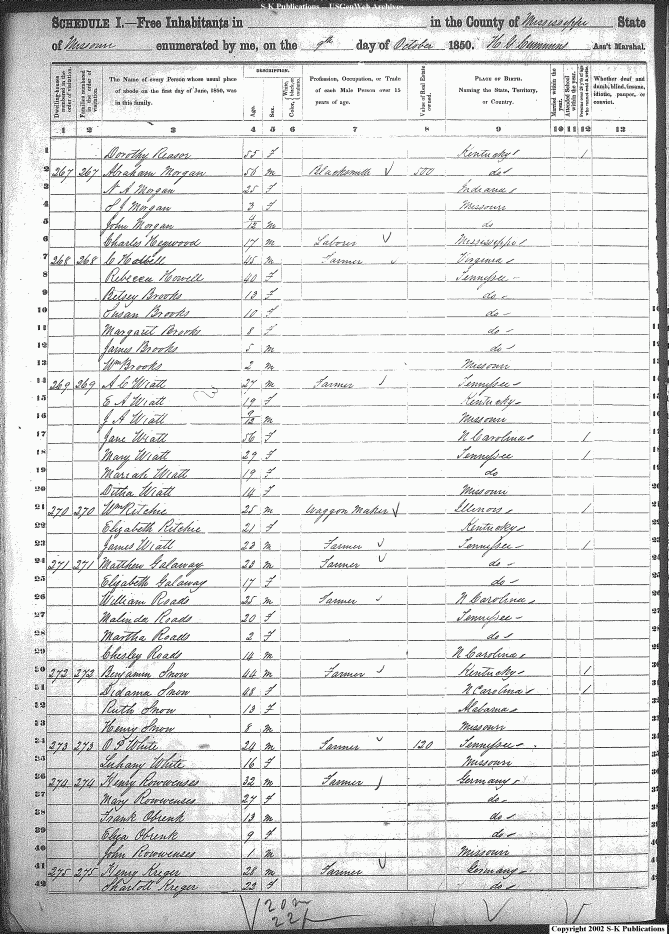 S-K Publications - USGenWeb Archives
SCHEDULE I.—Free Inhabitants in in the County of Mississippi State
of Missouri enumerated by me, on the 9th day of October 1850. Ass't Marshal.
Dwelling-houses numbered in the order of visitation.
Families numbered in the order of visitation.
The Name of every Person whose usual place of abode on the first day of June, 1850, was in this family.
DESCRIPTION.
Age.
Sex.
Color, White, black, or mulatto.
Profession, Occupation, or Trade of each Male Person over 15 years of age.
Value of Real Estate owned.
PLACE OF BIRTH. Naming the State, Territory, or Country.
Married within the year.
Attended School within the year.
Whether deaf and dumb, blind, insane, idiotic, pauper, or convict.
1 2 3 4 5 6 7 8 9 10 11 12 13
1 Dorothy Reasor 55 F Kentucky 1
2 267 267 Abraham Morgan 56 m Blacksmith 500 do
3 N A Morgan 25 F Indiana
4 S J Morgan 3 F Missouri
5 John Morgan 4/12 m do
6 Charles Heywood 17 m Laborer Mississippi
7 268 268 C Howell 45 m Farmer Virginia
8 Rebecca Howell 40 F Tennessee
9 Betsey Brooks 13 F do
10 Susan Brooks 10 F do
11 Margaret Brooks 8 F do
12 James Brooks 5 m do
13 Wm Brooks 2 m Missouri
14 269 269 A C Wiatt 27 m Farmer Tennessee
15 E A Wiatt 19 F Kentucky
16 J A Wiatt 9/12 m Missouri
17 Jane Wiatt 56 F N Carolina 1
18 Mary Wiatt 29 F Tennessee 1
19 Mariah Wiatt 19 F do
20 Ditha Wiatt 14 F Missouri
21 270 270 Wm Ritchie 25 m Waggon Maker Illinois 1
22 Elizabeth Ritchie 21 F Kentucky
23 James Wiatt 23 m Farmer Tennessee 1
24 271 271 Matthew Galaway 23 m Farmer do
25 Elizabeth Galaway 17 F do
26 William Roads 25 m Farmer N Carolina
27 Malinda Roads 20 F Tennessee
28 Martha Roads 2 F do
29 Chesley Roads 14 m N Carolina
30 272 272 Benjamin Snow 44 m Farmer Kentucky 1
31 Didama Snow 48 F N Carolina 1
32 Ruth Snow 13 F Alabama
33 Henry Snow 8 m Missouri
34 273 273 O P White 24 m Farmer 120 Tennessee
35 Luhany White 16 F Missouri
36 274 274 Henry Rowwenses 32 m Farmer Germany
37 Mary Rowwenses 27 F do
38 Frank Obrenk 13 m do
39 Elisa Obrenk 9 F do
40 John Rowwenses 1 m Missouri
41 275 275 Henry Kreger 28 m Farmer Germany
42 Sharlott Kreger 22 F do
Copyright 2002 S-K Publications